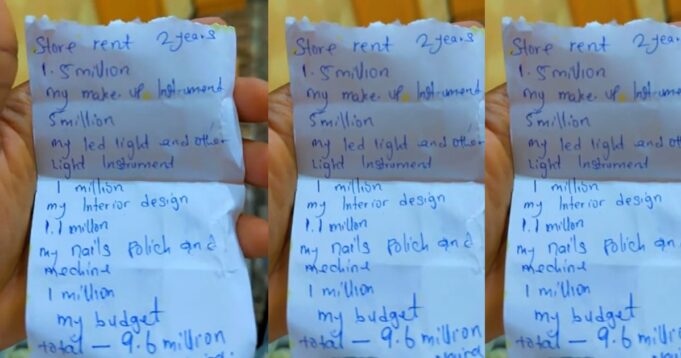 Store rent 2 years
1.5 million
my make. up Instrument
5 million
my led light and other
Light Instrument
1 million
my Interior design
1.1 millon
my nails polich and
mechine
1 million
my budget
total — 9.6 million
Store rent 2 years
1.5 million
my make. up Instrument
5 million
my led light and other
Light Instrument
1 million
my Interior design
1.1 millon
my nails polich and
mechine
1 million
my budget
total — 9.6 million
Store rent 2 year
1.5 million
my make. up Instrume
5 million
my led light and othe
Light Instrument
1 million
my Interior design
1.1 millon
my nails polich an
mechine
1 million
my budget
total — 9.6 million